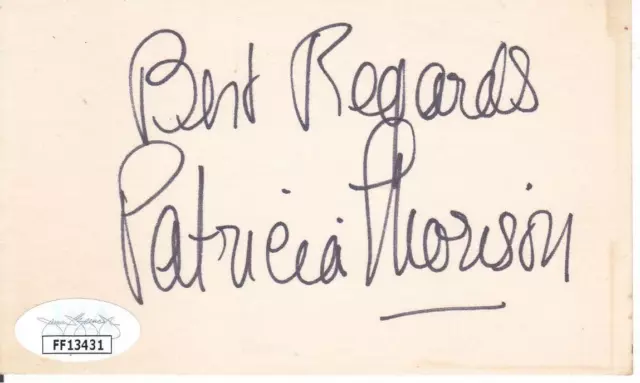 Best Regards
Patricia Morison
FF13431